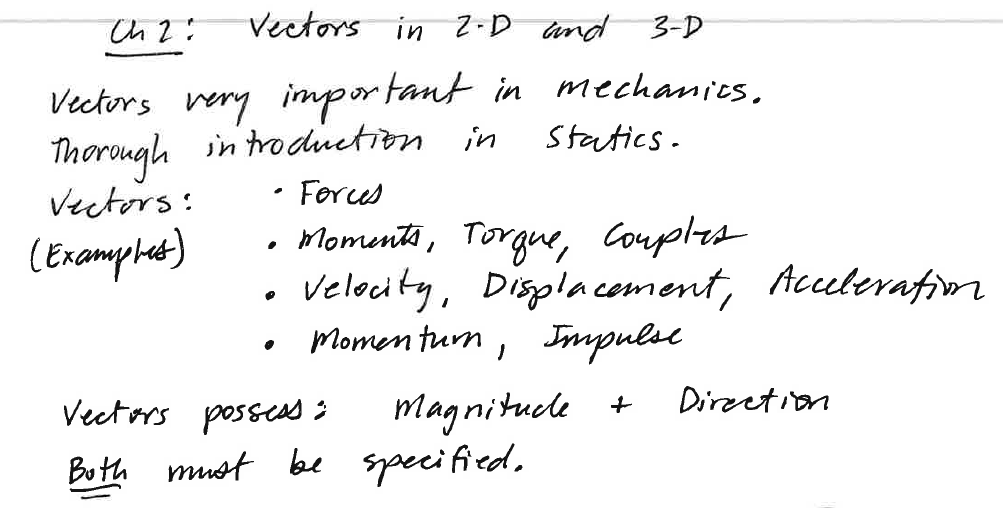 Ch 2: Vectors in 2-D and 3-D
Vectors very important in mechanics.
Thorough introduction in Statics.
Vectors: • Forces
(Examples) • Moments, Torque, Couples
• Velocity, Displacement, Acceleration
• Momentum, Impulse
Vectors possess: Magnitude + Direction
Both must be specified.